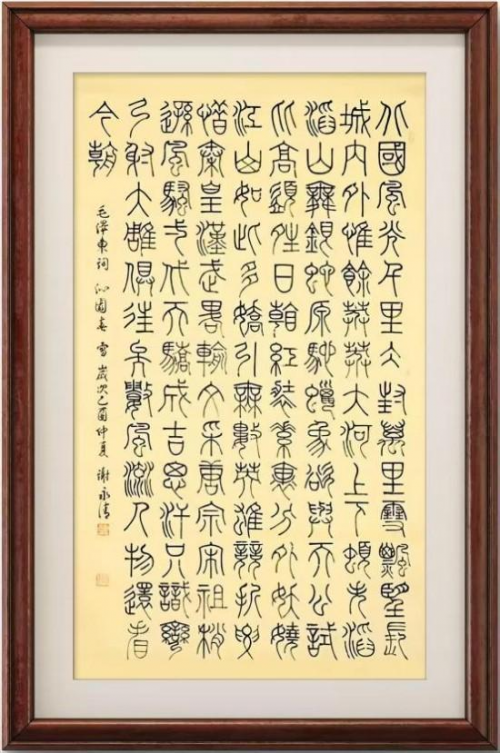 北國風光千里冰封萬里雪飄望長
城內外惟餘莽莽大河上下頓失滔
滔山舞銀蛇原馳蠟象欲與天公試
比高須晴日看紅裝素裹分外妖嬈
江山如此多嬌引無數英雄競折腰
惜秦皇漢武略輸文采唐宗宋祖稍
遜風騷一代天驕成吉思汗只識彎
弓射大雕俱往矣數風流人物還看
今朝
毛澤東詞 沁園春 雪 歲次己酉仲夏 謝永清